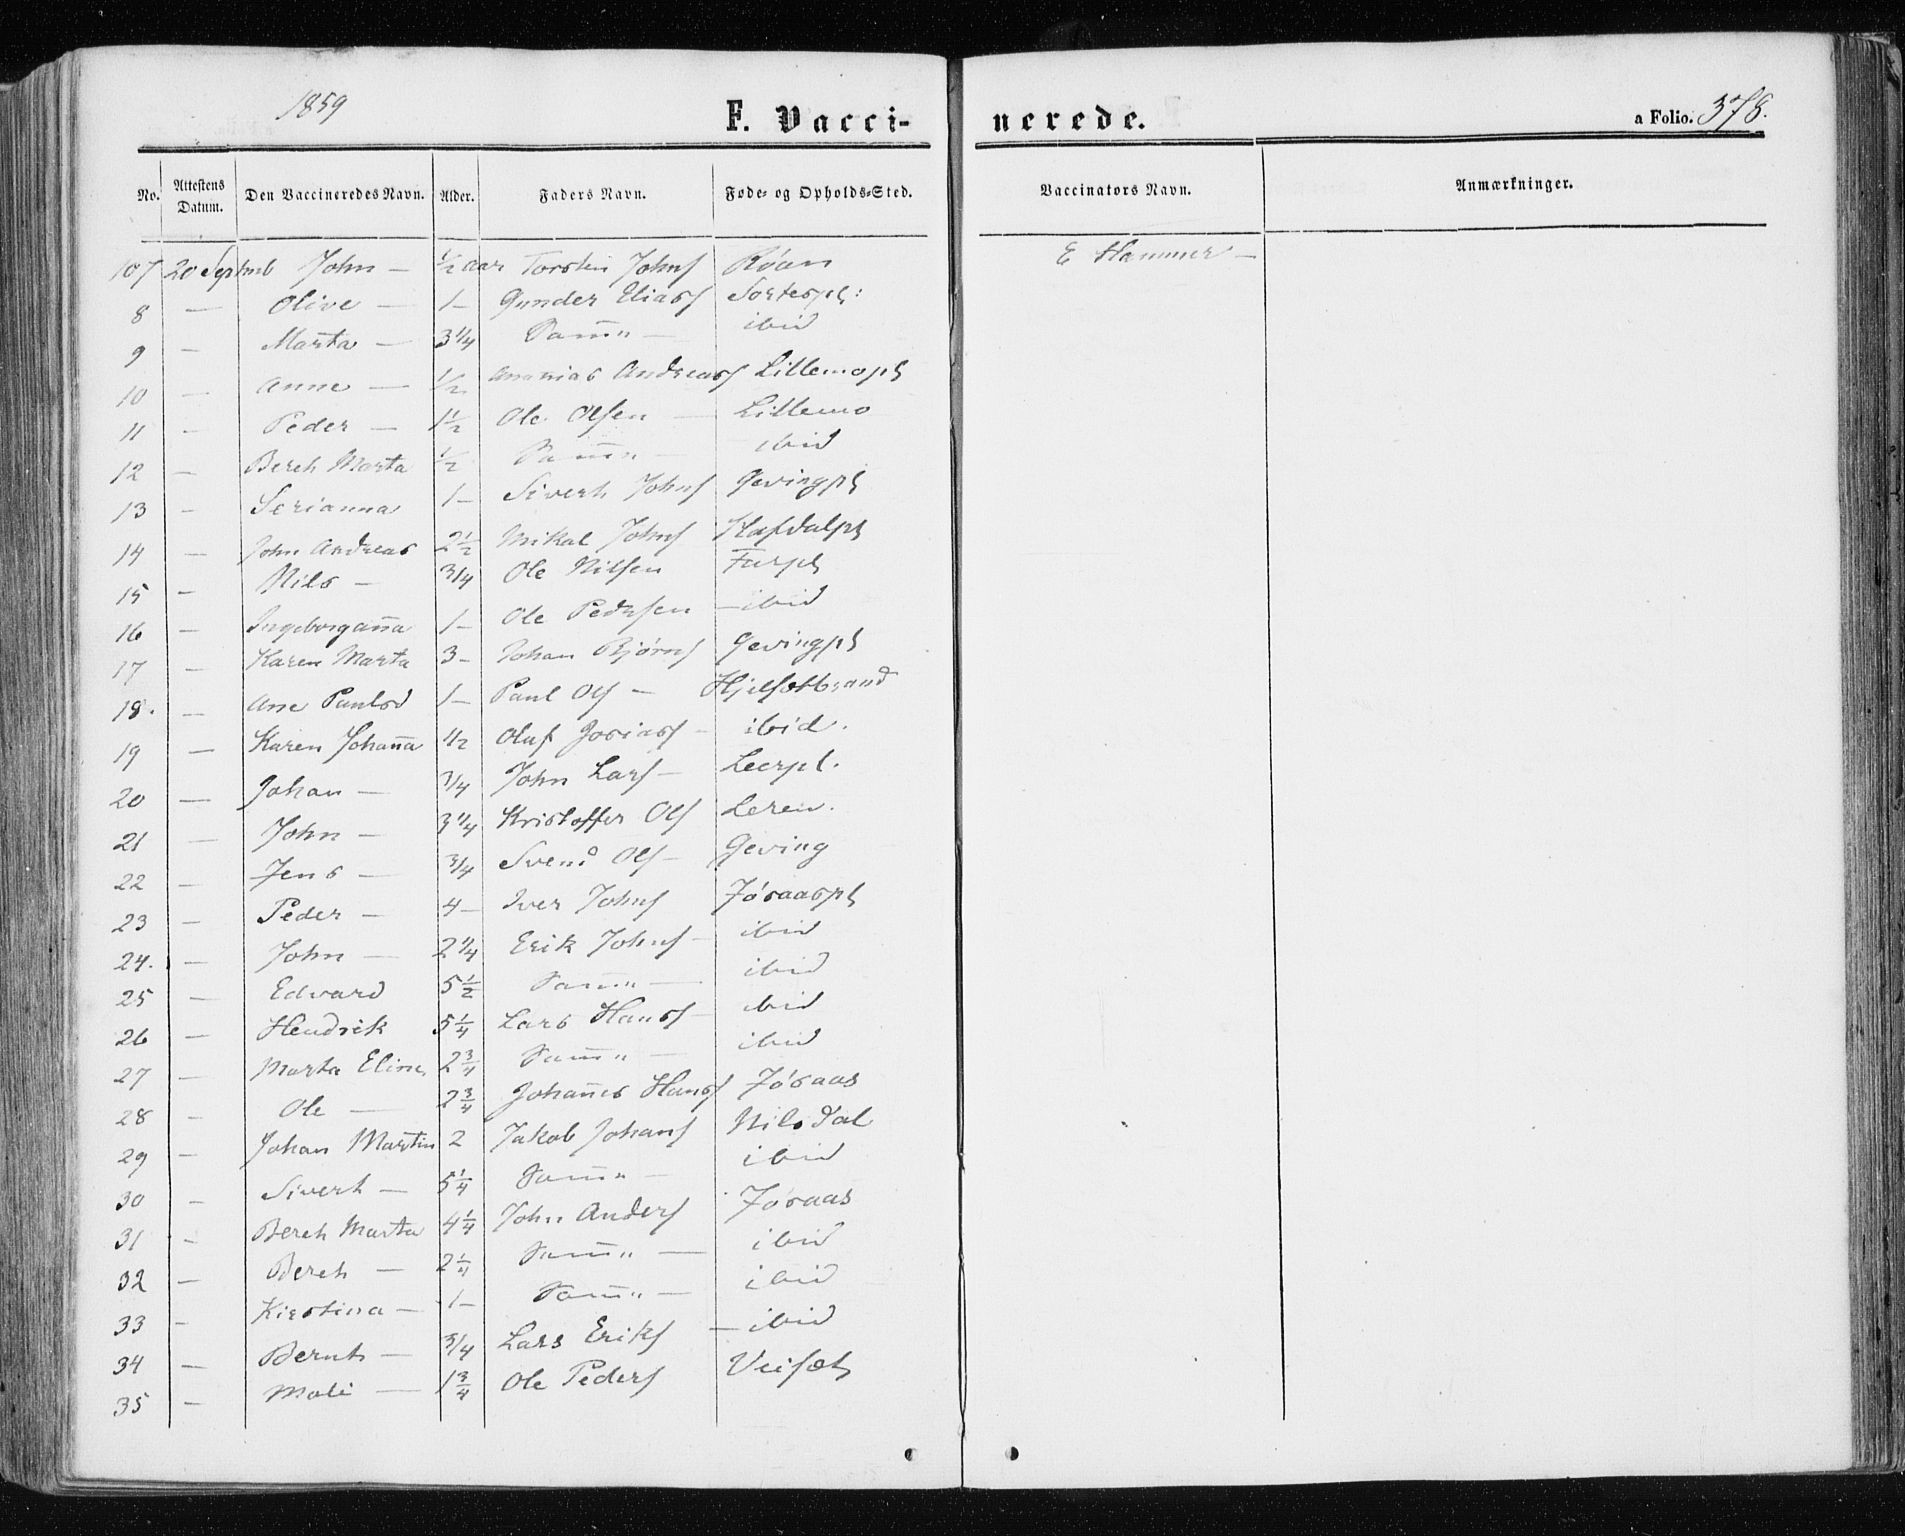 1859
F. Vacci-nerede.
a Folio. 378.
No. Attestens Datum. Den Vaccineredes Navn. Alder. Faders Navn. Føde- og Opholds-Sted. Vaccinators Navn. Anmærkninger.
107 20 Septmb John — ½ aar Torsten Johns Røan E Hammer —
8 — Olive — 1 — Gunder Elias Sortespl:
9 — Marta — 3 1/4 Samm" — ibid
10 — Anne — ½ Ananias Andreas Lillemopl
11 — Peder — 1½ Ole Olsen — Lillemo
12 — Bereh Marta ½ Samm" — ibid
13 — Serianna 1 — Siverh Johns Gevingpl
14 — John Andreas 2½ Mikal Johns Hafdalpl
15 — Nils — 3/4 Ole Nilsen Furpl
16 — Ingeborganna 1 — Ole Pedersen — ibid
17 — Karen Marta 3 — Johan Bjørns Gevingpl
18. — Ane Paulsd 1 — Paul Ols — Hjelsetbrand
19 — Karen Johanna 1/2 Olaf Josias — ibid.
20 — Johan — 3/4 John Lars — Leerpl.
21 — John — 3 1/4 Kristoffer Ols Leren.
22 — Jens — 3/4 Svend Ols — Geving
23 — Peder — 4 — Iver Johns Jøsaaspl
24. — John — 2 1/4 Erik Johns — ibid
25 — Edvard 5½ Samm" — ibid
26 — Hendrik 5¼ Lars Hans — ibid
27 — Marta Eline 2¾ Samm" — ibid
28 — Ole — 2¾ Johannes Hans Jøsaas
29 — Johan Martin 2 Jakob Johans Nilsdal
30 — Siverh — 5¼ Samm" — ibid
31 — Bereh Marta 4¼ John Anders Jøsaas
32 — Bereh — 2¼ Samm" — ibid
33 — Kirstina — 1 — Samm" — ibid
34 — Bernh — 3/4 Lars Eriks — ibid
35 — Mali — 1¾ Ole Peders Veiset